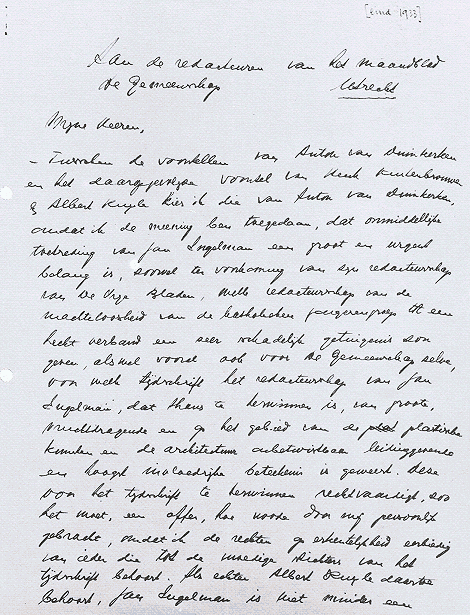 [eind 1933]
Aan de redacteuren van het maandblad
De Gemeenschap Utrecht
Mijne Heeren,
– Tusschen de voorstellen van Anton van Duinkerken
en het daaropvolgen voorstel van Henk Kuitenbrouwer
& Albert Kuyle kies ik die van Anton van Duinkerken,
omdat ik de meening ben toegedaan, dat onmiddellijke
toetreding van Jan Engelman een groot en urgent
belang is, zoowel ter voorkoming van zijn redacteurschap
van De Vrije Bladen, welk redacteurschap van de
machteloosheid van de katholieken jongerengroep een
hecht verband en zeer schadelijk getuigenis zou
geven, als wel vooral ook voor De Gemeenschap zelve,
voor welk tijdschrift het redacteurschap van Jan
Engelman, dat thans te herwinnen is, van groote,
vruchtdragende en op het gebied van de plastische
kunsten en de architectuur onbetwistbaar leidinggevende
en hoogst waardevolle beteekenis is geweest. Deze
voor het tijdschrift te herwinnen rechtvaardigt, zoo
het moet, een offer, hoe noode door mij persoonlijk
gebracht, omdat ik de rechten op erkentelijkheid eerbiedig
van ieder die tot de moedige stichters van het
tijdschrift behoort. Als echter Albert Kuyle daartoe
behoort, Jan Engelman is niet minder een